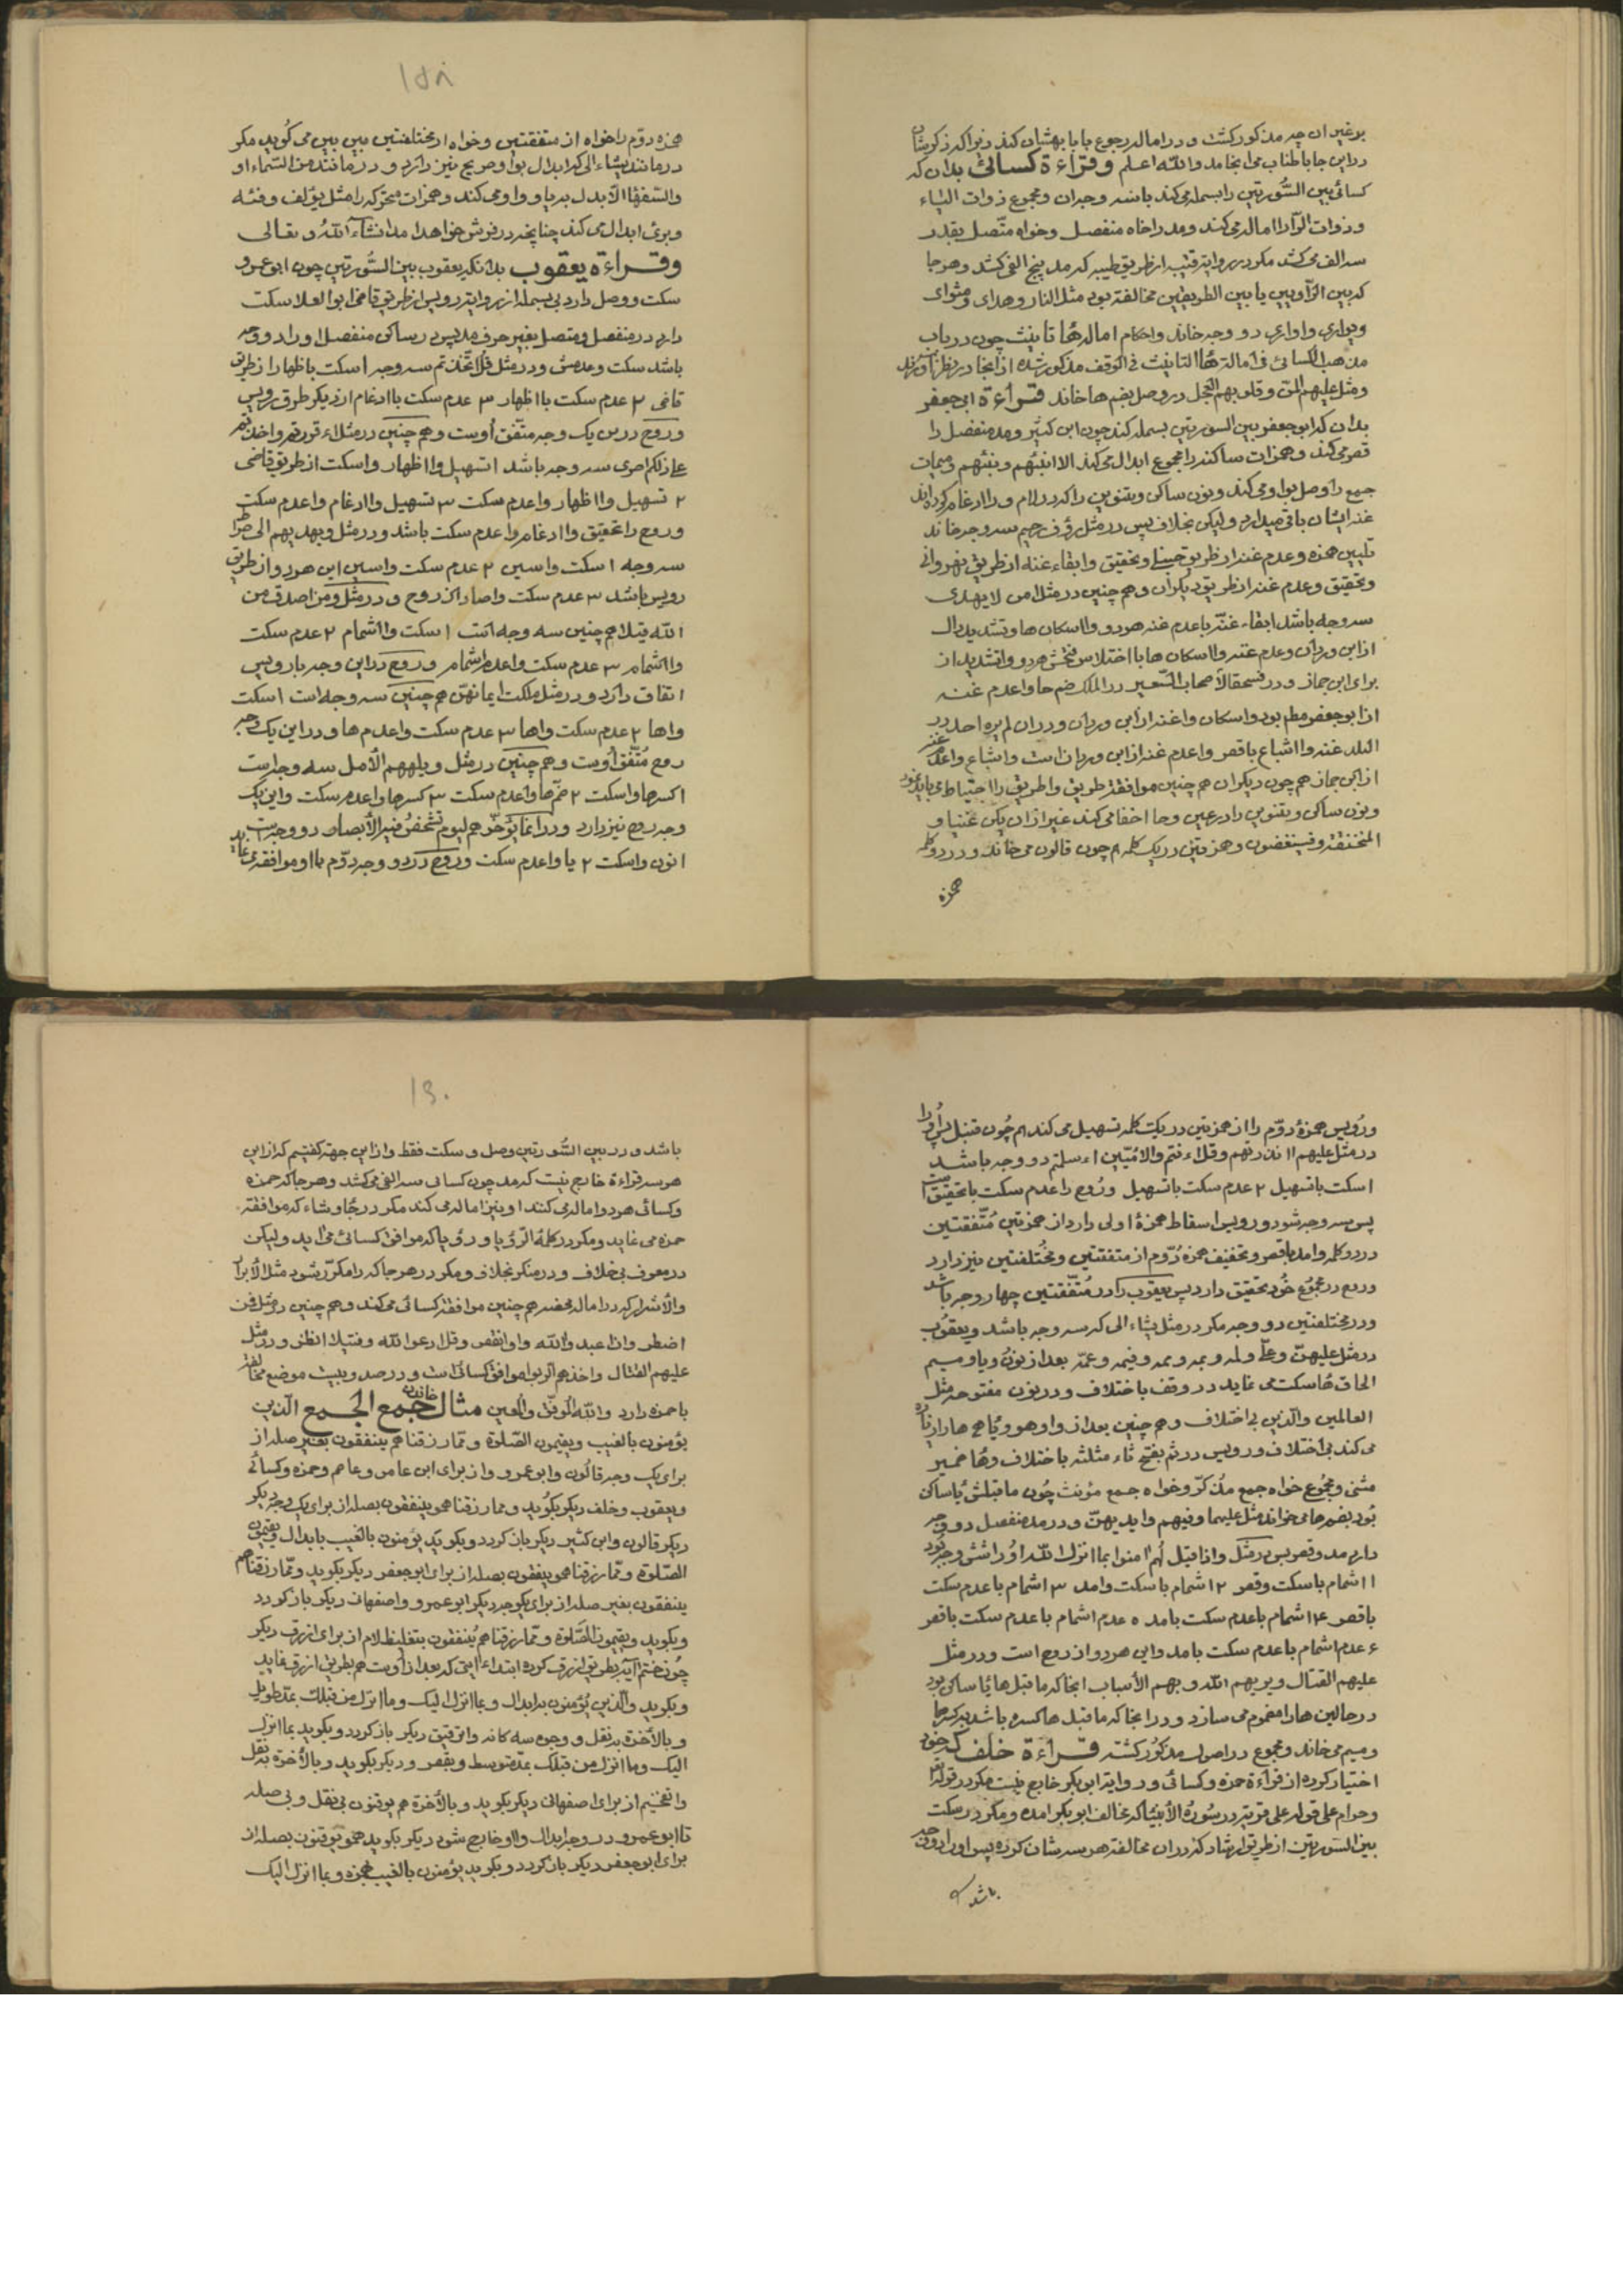 برغیر ان چه مذکور کشت و در اماله رجوع بابا بهشان کند زیراکه ذکر بشان
در این جا باطناب می انجامد والله اعلم وقراءة کسائی بدان که
کسائی بین السّورتین را بسمله می کند باشد وجهان ومجموع ذوات الیاء
وذوات الرّا را اماله می کند ومد را خاه منفصل وخواه متّصل بقدر
سه الف می کشد مکر در روایة قتیبه از طریق طیبه که مد پنج الف کشد وهرجا
که بین الرّاویین یا بین الطریقین مخالفة بود مثل النار وهدای ومثوای
ویواری واواری دو وجه خاند واحکام اماله هٔا تانیث چون در باب
مذهب الکسائی فی امالة هٔا التانیث فی الوقف مذکور شده از انجا در نظر
ومثل علیهم المن وقلوبهم العجل در وصل بضم ها خاند قراءة ابی جعفر
بدان که ابو جعفر بین السورتین بسمله کند چون ابن کثیر ومد منفصل را
قصر می کند وهمزات ساکنه را مجموع ابدال می کند الا انبئهم ونبئهم ومیمات
جمع را وصل بواو می کند ونون ساکن وتنوین را که در لام ورا ادغام کرده اند
غنه ایشان باقی میدارد ولیکن بخلاف پس در مثل رؤف رحیم سه وجه خاند
تلیین همزه وعدم غنه از طریق وتحقیق وابقاء غنه از طریق نهروانی
وتحقیق وعدم غنه از طریق دیکران وهم چنین در مثل امن لا یهدی
سه وجه باشد ابقاء غنّه باعدم غنه هردو واسکان ها وتشدید دال
از ابن وردان وعدم غنه واسکان ها با اختلاس فتحش هردو واتشدید از
برای ابن جماز ودر فسحقا لأصحاب السّعیر در الملک ضم حا واعدم غنه
از ابو جعفر بود واسکان واغنه از ابن وردان ودر ان لم یره احد در
البلد غنه وااشباع باقصر واعدم غنه از ابن وردان است واشباع واعدم غنه
از ابن جماز هم چون دیکران هم چنین موافقة طریق واطریق را احتیاط می باید نمود
ونون ساکن وتنوین را در عین وحا اخفا می کند غیر از ان یکن غنیا و
المنخنقة وفسینغضون وهمزتین در یک کلمه هم چون قالون می خاند ودر دو کلمه
همزه
١٥٨
همزه دوّم را خواه از متفقتین وخواه از مختلفتین بین بین می کوید مکر
در مانند یشاء الی که ابدال بواو صریح نیز دارد ودر مانند من السّماء او
والسّفهٔا الا بدل به یا وواو می کند وهمزات متحرکه را مثل یؤلف وفئه
وبرئ ابدال می کند چنانچه در فرش خواهد امد انشاء الله تعالی
وقراءة یعقوب بدانکه یعقوب بین السّورتین چون ابو عمرو
سکت ووصل دارد بی بسمله از روایة رویس از طریق قاضی ابو العلا سکت
دارد در منفصل ومتصل بغیر حرف مد پس در ساکن منفصل او را دو وجه
باشد سکت وعدمش ودر مثل قل اتّخذتم سه وجه ا سکت باظهار از طریق
قاضی ٢ عدم سکت با اظهار ٣ عدم سکت با ادغام از دیکر طرق رویس
وروح در س یک وجه متّفق اوست وهم چنین در مثل ءاقررتم واخذتم
علی ذلکم اصری سه وجه باشد ا تسهیل وا اظهار واسکت از طریق قاضی
٢ تسهیل وا اظهار واعدم سکت ٣ تسهیل واادغام واعدم سکت
وروح را تحقیق واادغام واعدم سکت باشد ودر مثل ویهدیهم الی صراط
سه وجه ا سکت واسین ٢ عدم سکت واسین این هردو از طریق
رویس باشد ٣ عدم سکت واصاد از روح ودر مثل ومن اصدق من
الله قیلا هم چنین سه وجه است ا سکت وااشمام ٢ عدم سکت
وااشمام ٣ عدم سکت واعدم اشمام وروح در این وجه با رویس
اتفاق دارد ودر مثل ملکت ایمانهنّ هم چنین سه وجه است ا سکت
واها ٢ عدم سکت واها ٣ عدم سکت واعدم ها ودر این یک وجه
روح متّفق اوست وهم چنین در مثل ویلههم الأمل سه وجه است
ا کسرها واسکت ٢ ضمّ ها واعدم سکت ٣ کسرها واعدم سکت واین یک
وجه روح نیز دارد ودر انما یؤخّرهم لیوم تشخص فیه الأبصار دو وجه است
ا نون واسکت ٢ یا واعدم سکت وروح در دو وجه دوّم با او موافقة می نماید
ورُویس همزهٔ دوّم را از همزتین در یک کلمه تسهیل می کند هم چُون قنبل پس او را
در مثل علیهم ءانذرتهم وقل ءانتم والامّیّین ءاسلمتم دو وجه باشد
ا سکت باتسهیل ٢ عدم سکت باتسهیل ورُوح را عدم سکت باتحقیق است
پس سه وجه شود ورویس اسقاط همزهٔ اولی دارد از همزتین مُتّفقتین
در دو کلمه وامد باقصر وتخفیف همزه دُوّم از متفقتین ومُختلفتین نیز دارد
وروح در مجمُوع خُود تحقیق دارد پس یعقوب را در مُتّفقتین چهار وجه باشد
ودر مختلفتین دو وجه مکر در مثل یشاء الی که سه وجه باشد ویعقُوب
در مثل علیهنّ وعلیّ ولمه وبمه وممه وفیمه وعمّه بعد از نونُ ویا ومیم
الحاق هٔا سکت می نماید در وقف باختلاف ودر نون مفتوحه مثل
العالمین والّذین بی اختلاف وهم چنین بعد از واو هو ویٔا هی ها را زیاده
می کند بی اختلاف ورویس در ثمّ بفتح ثاء مثلثه باختلاف وهٔا ضمیر
مثنی ومجمُوع خواه جمع مذکّر وخواه جمع مؤنث چُون ما قبلش یٔا ساکن
بُود بضم ها می خواند مثل علیهما وفیهم وایدیهنّ ودر مد منفصل دو وجه
دارد مد وقصر پس در مثل واذا قیل لهُم امنوا بما انزل الله اوُ را شش وجه بُود
ا اشمام باسکت وقصر ٢ اشمام باسکت وامد ٣ اشمام باعدم سکت
باقصر ۴ اشمام باعدم سکت بامد ٥ عدم اشمام باعدم سکت باقصر
۶ عدم اشمام باعدم سکت بامد واین هردو از روح است ودر مثل
علیهم القتال ویریهم الله وبهم الأسباب انجا که ماقبل ها یٔا ساکن بود
در حالین ها را مضموم می سازد ودر انجا که ماقبل ها کسره باشد بکسر ها
ومیم می خاند ومجموع در اصول مذکُور کشته قراءة خلف که خود
اختیار کرده از قراءة حمزه وکسائی وروایة ابو بکر خارج نیست مکر در قوله تعا
وحرام علی قوله علی قریة در سُورهٔ الأنبیٔا که مخالف ابو بکر امده ومکر در سکت
بین السّورتین از طریق ارشاد که در ان مخالفة هر سه شان کرده پس او را دو وجه
باشد
باشد ودر بین السُّورتین وصل وسکت فقط واز این جهة کفتیم که از این
هر سه قراءة خارج نیست که مد چون کسائی سه الف می کشد وهرجا که حمزه
وکسائی هردو اماله می کنند او نیز اماله می کند مکر در جٔا وشاء که موافقة
حمزه می نماید ومکر در کلمهٔ الرّؤیا ورؤیا که موافق کسائی می اید ولیکن
در معرف بی خلاف ودر منکر بخلاف ومکر در هرجا که را مکرّر شود مثل الأبرار
والأشرار که در اماله محضه هم چنین موافقة کسائی می کند وهم چنین در مثل فمن
اضطر وان اعبدوا الله واو انقص وقل ادعوا الله وفتیلا انظر ودر مثل
علیهم القتال واخذهم الربوا موافق کسائی است ودر صد وبیست موضع مخالفة
باحمزه دارد والله الموفق والمعین مثال خاندن جمع الجمع الّذین
یؤمنون بالغیب ویقیمون الصّلوة وممّا رزقناهم ینفقون بغیر صله از
برای یک وجه قالُون وابو عمرو واز برای ابن عامر وعاصم وحمزه وکسائی
ویعقوب وخلف دیکر بکوُید ومما رزقناهمو ینفقون بصله از برای یک وجه دیکر
دیکر قالون وابن کثیر دیکر باز کردد وبکوید یؤمنون بالغیب بابدال ویقیمون
الصّلوة وممّا رزقناهمو ینفقون بصله از برای ابو جعفر دیکر بکوید وممّا رزقناهم
ینفقون بغیر صله از برای یکوجه دیکر ابو عمرو واصفهانی دیکر باز کردد
وبکوید ویقیمون الصّلوة وممّا رزقناهم یُنفقون بتغلیظ لام از برای ازرق دیکر
چُون ختم آیه بطریق ازرق کرده ابتداء ایتی که بعد از اوست هم بطریق ازرق نماید
وبکوید والّذین یُؤمنون بابدال وبما انزل الیک وما انزل من قبلک بمدّ طویل
وبالأخرة به نقل ووجوه سه کانه واترقیق دیکر باز کردد وبکوید بما انزل
الیک وما انزل من قبلک بمدّ متوسط وبقصر ودیکر بکوید وبالأخرة به نقل
واتفخیم از برای اصفهانی دیکر بکوید وبالأخرة هم یوقنون بی نقل وبی صله
تا ابو عمرو در وجه ابدال واو خارج شود دیکر بکوید همو یوقنون بصله از
برای ابو جعفر دیکر باز کردد وبکوید یؤمنون بالغیب بهمزه وبما انزل الیک